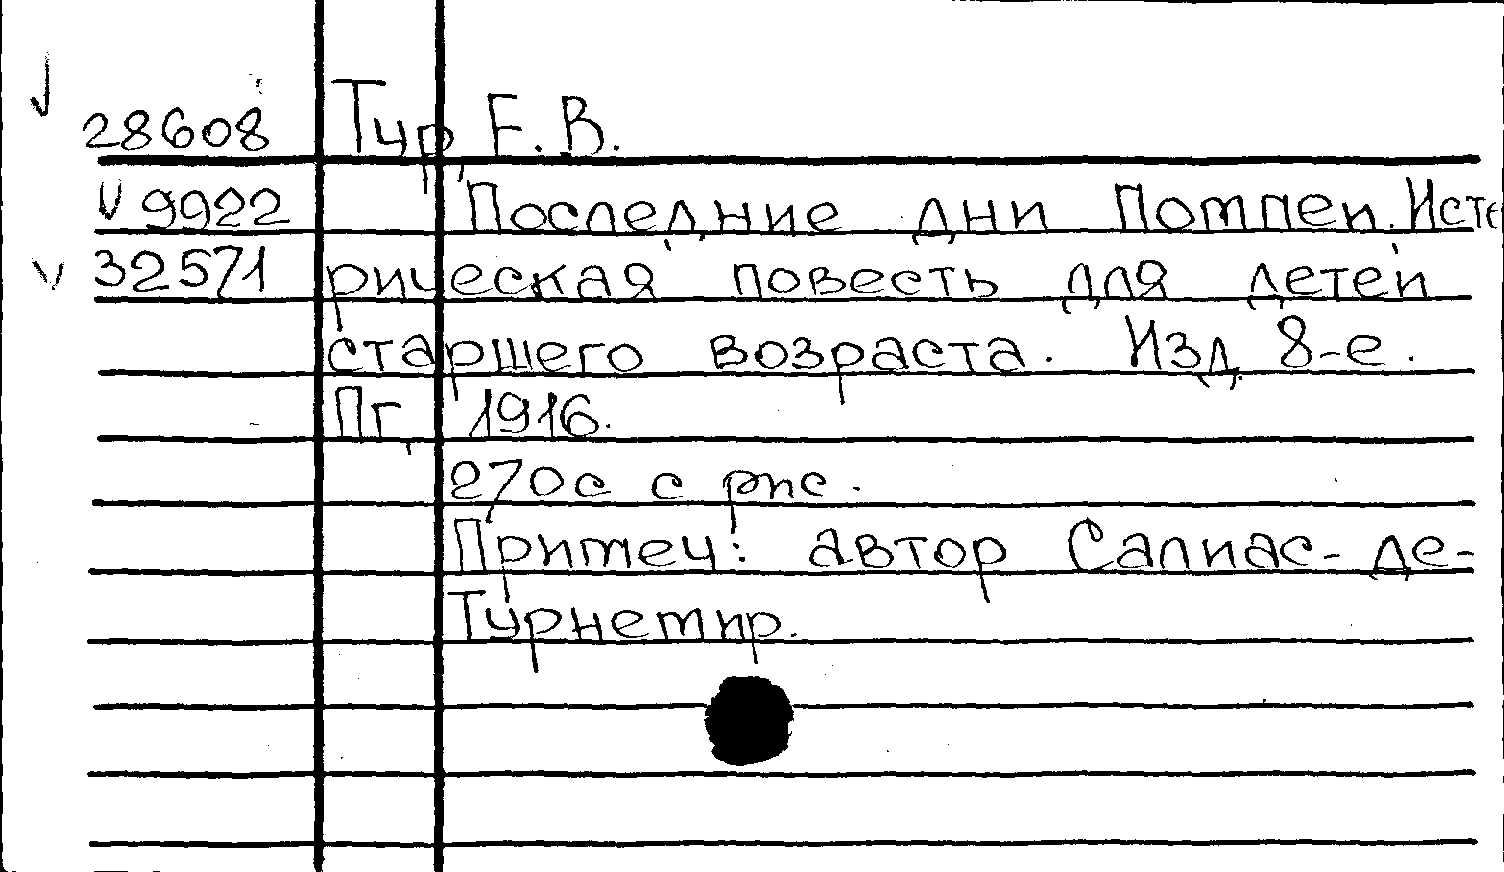 28608 Тур, Е. В.
V 9922 Последние дни Помпеи. Исто
V 32571 рическая повесть для детей
старшего возраста. Изд. 8-е.
Пг, 1916.
270с с рис.
Примеч: автор Салиас-де-
Турнемир.